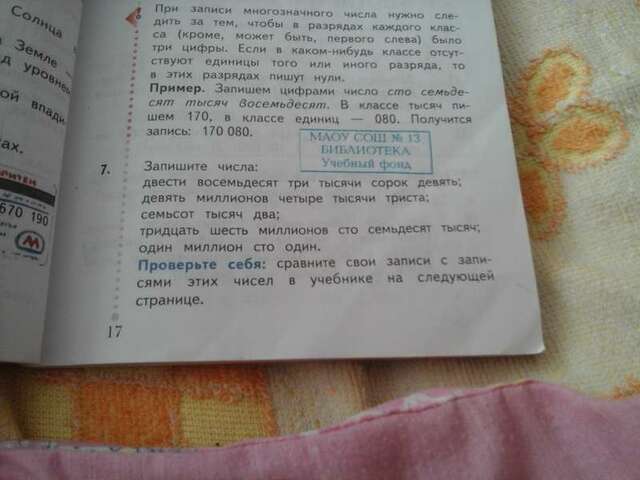 Солнца
Земле —
уровне
ой впади
ах.
670 190
М
При записи многозначного числа нужно сле-
дить за тем, чтобы в разрядах каждого клас-
са (кроме, может быть, первого слева) было
три цифры. Если в каком-нибудь классе отсут-
ствуют единицы того или иного разряда, то
в этих разрядах пишут нули.
Пример. Запишем цифрами число сто семьде-
сят тысяч восемьдесят. В классе тысяч пи-
шем 170, в классе единиц — 080. Получится
запись: 170 080.
МАОУ СОШ № 13
БИБЛИОТЕКА
Учебный фонд
7. Запишите числа:
двести восемьдесят три тысячи сорок девять;
девять миллионов четыре тысячи триста;
семьсот тысяч два;
тридцать шесть миллионов сто семьдесят тысяч;
один миллион сто один.
Проверьте себя: сравните свои записи с запи-
сями этих чисел в учебнике на следующей
странице.
17